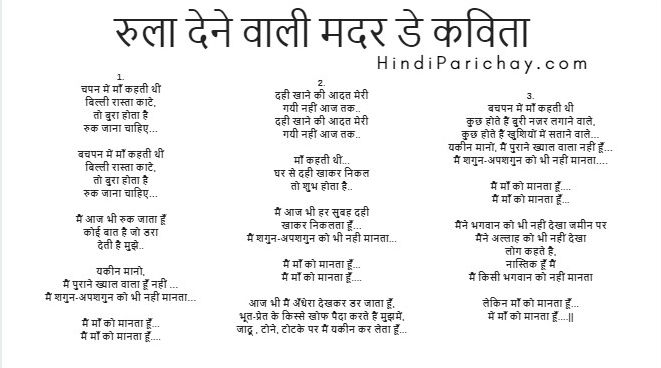 रुला देने वाली मदर डे कविता
HindiParichay.com
1.
चपन में माँ कहती थी
बिल्ली रास्ता काटे,
तो बुरा होता है
रुक जाना चाहिए...
बचपन में माँ कहती थी
बिल्ली रास्ता काटे,
तो बुरा होता है
रुक जाना चाहिए...
मैं आज भी रुक जाता हूँ
कोई बात है जो डरा
देती है मुझे..
यकीन मानो,
मैं पुराने ख्याल वाला हूँ नहीं ...
मैं शगुन-अपशगुन को भी नहीं मानता...
मैं माँ को मानता हूँ...
मैं माँ को मानता हूँ....
2.
दही खाने की आदत मेरी
गयी नहीं आज तक..
दही खाने की आदत मेरी
गयी नहीं आज तक..
माँ कहती थी...
घर से दही खाकर निकल
तो शुभ होता है..
मैं आज भी हर सुबह दही
खाकर निकलता हूँ...
मैं शगुन-अपशगुन को भी नहीं मानता...
मैं माँ को मानता हूँ...
मैं माँ को मानता हूँ....
आज भी मैं अँधेरा देखकर डर जाता हूँ,
भूत-प्रेत के किस्से खोफ पैदा करते हैं मुझमें,
जादू , टोने, टोटके पर मैं यकीन कर लेता हूँ...
3.
बचपन में माँ कहती थी
कुछ होते हैं बुरी नज़र लगाने वाले,
कुछ होते हैं खुशियों में सताने वाले...
यकीन मानों, मैं पुराने ख्याल वाला नहीं हूँ...
मैं शगुन-अपशगुन को भी नहीं मानता....
मैं माँ को मानता हूँ....
मैं माँ को मानता हूँ...
मैंने भगवान को भी नहीं देखा जमीन पर
मैंने अल्लाह को भी नहीं देखा
लोग कहते है,
नास्तिक हूँ मैं
मैं किसी भगवान को नहीं मानता
लेकिन माँ को मानता हूँ...
में माँ को मानता हूँ....||